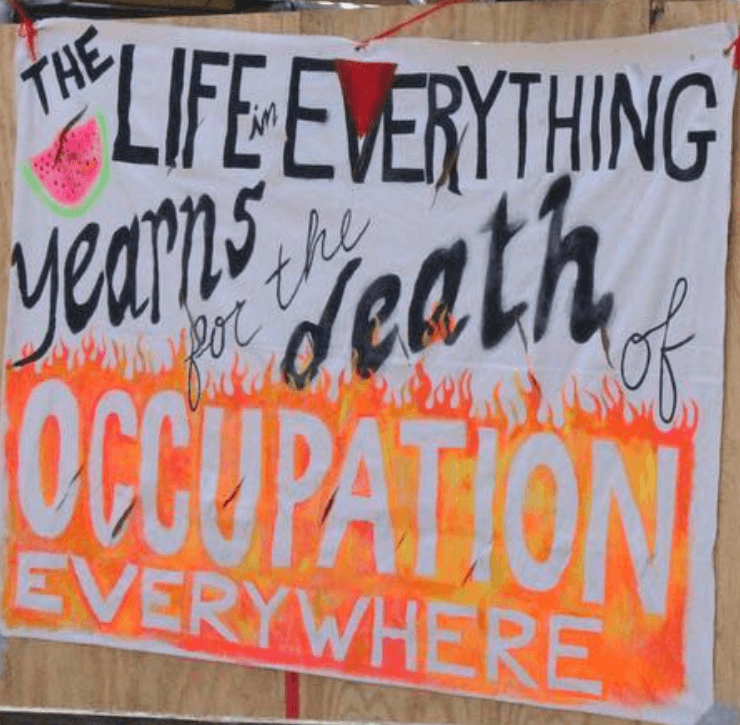 THE LIFE in EVERYTHING
yearns for the death of
OCCUPATION
EVERYWHERE